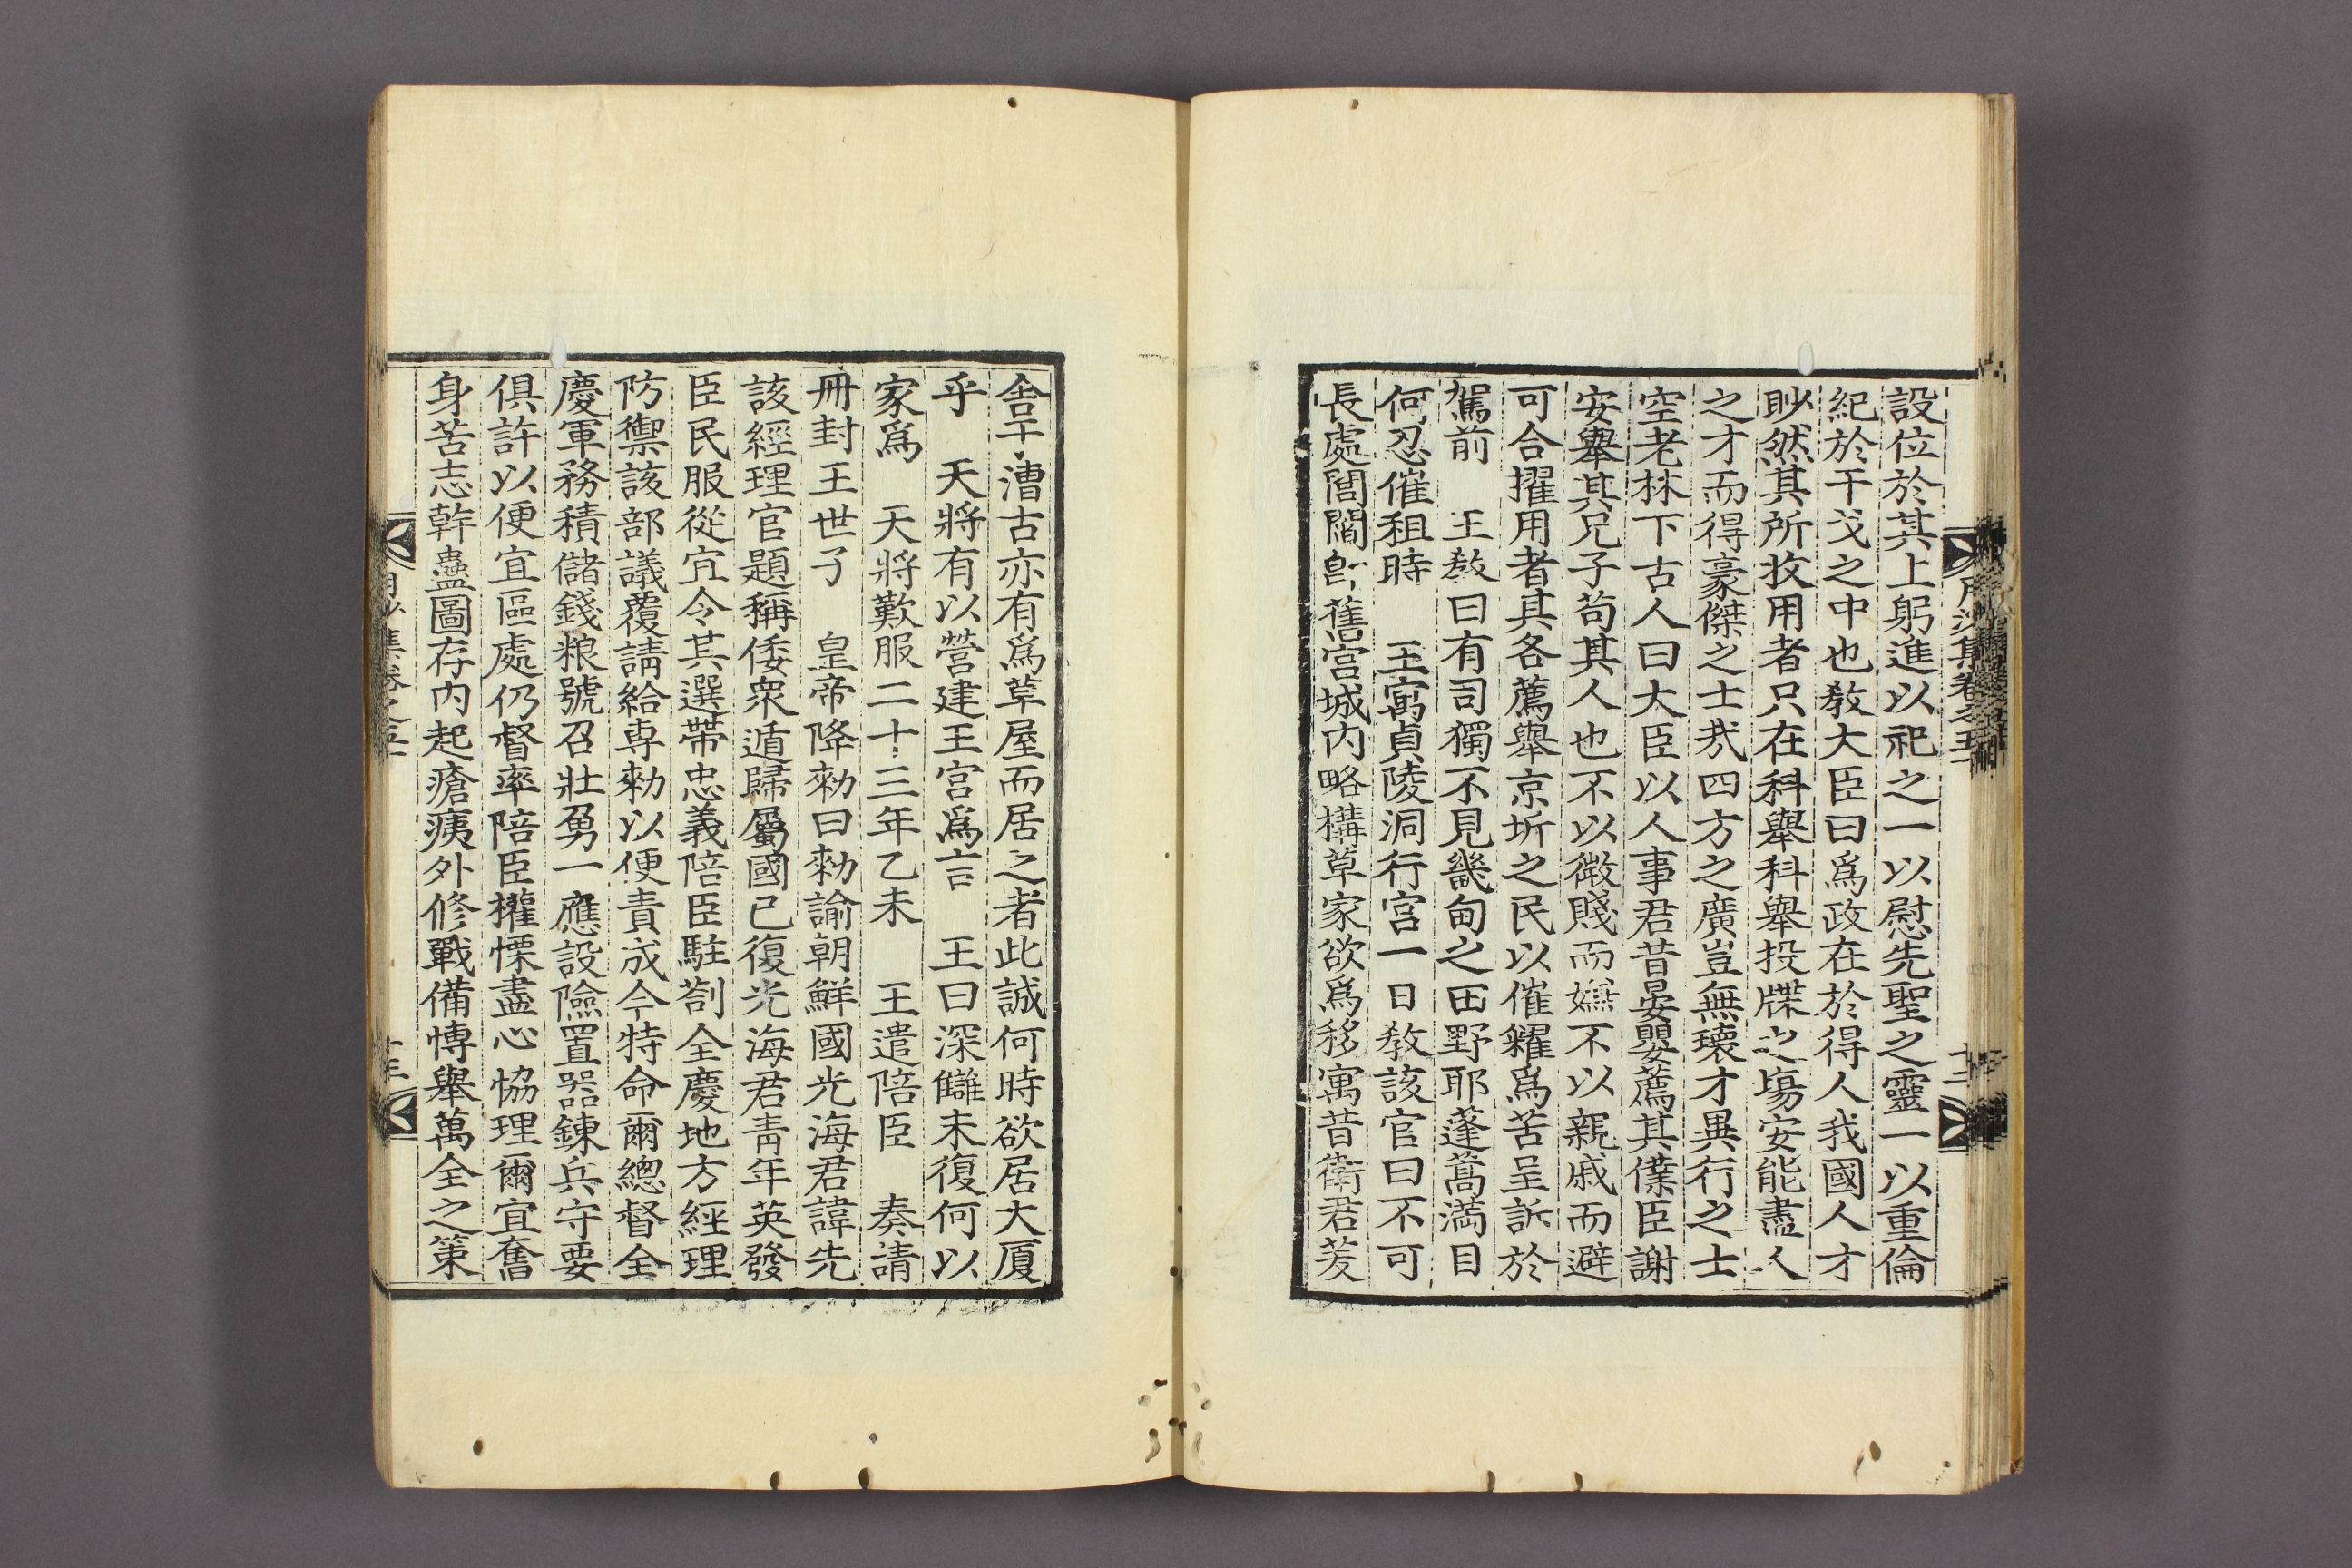 設位於其上躬進以祀之一以慰先聖之靈一以重倫
紀於干戈之中也敎大臣曰爲政在於得人我國人才
眇然其所收用者只在科舉科舉投牒之場安能盡人
之才而得豪傑之士㢤四方之廣豈無瓌才異行之士
空老林下古人曰大臣以人事君昔晏嬰薦其僕臣謝
安舉其兄子苟其人也不以微賤而嫌不以親戚而避
可合擢用者其各薦舉京圻之民以催糴爲苦呈訴於
駕前　王敎曰有司獨不見畿甸之田野耶蓬蒿滿目
何忍催租時　王寓貞陵洞行宮一日敎該官曰不可
長處閭閻卽舊宮城內略構草家欲爲移寓昔衛君茇
舎于漕古亦有爲草屋而居之者此誠何時欲居大厦
乎　天將有以營建王宮爲言　王曰深讎未復何以
家爲　天將歎服二十三年乙未　王遣陪臣　奏請
冊封王世子　皇帝降勑曰勑諭朝鮮國光海君諱先
該經理官題稱倭衆遁歸屬國已復光海君靑年英發
臣民服從宜令其選帶忠義陪臣駐劄全慶地方經理
防禦該部議覆請給專勑以便責成今特命爾總督全
慶軍務積儲錢粮號召壯勇一應設險置器鍊兵守要
俱許以便宜區處仍督率陪臣權慄盡心恊理爾宜奮
身苦志幹蠱圖存內起瘡痍外修戰備慱舉萬全之策